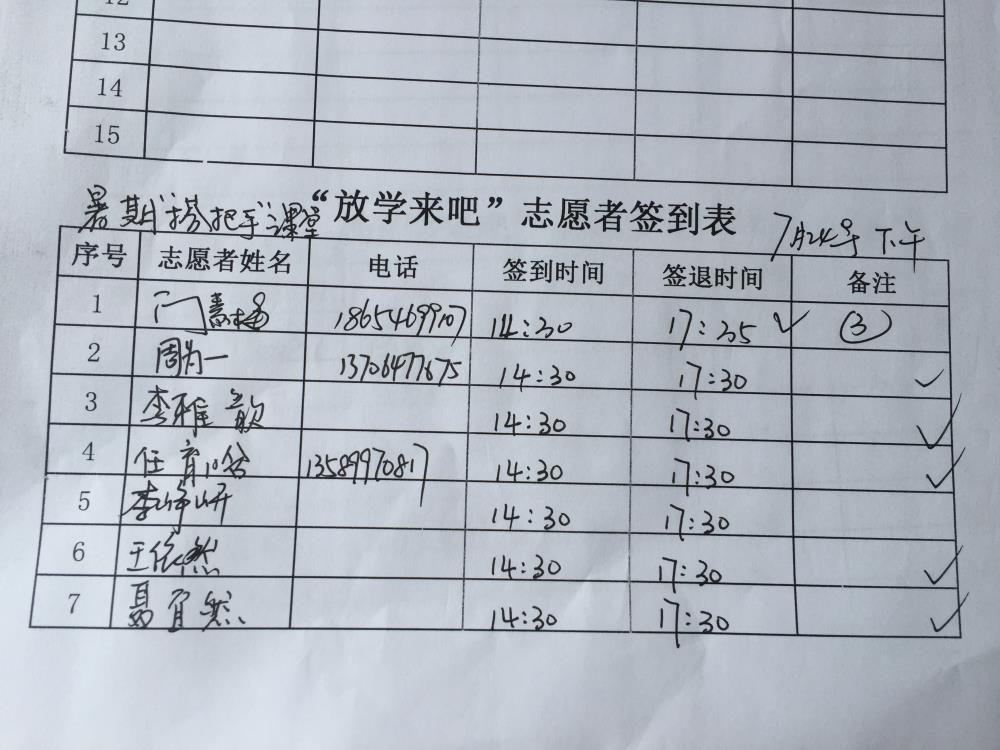 12
13
14
15
暑期"搭把手"课堂 "放学来吧"志愿者签到表 7月24号 下午
序号 志愿者姓名 电话 签到时间 签退时间 备注
1 门 18654699107 14:30 17:35 ✓ ③
2 周为一 13706477675 14:30 17:30 ✓
3 李雅歆 14:30 17:30 ✓
4 任育 13589970817 14:30 17:30 ✓
5 李峥妍 14:30 17:30
6 王依然 14:30 17:30 ✓
7 聂宜然 14:30 17:30 ✓